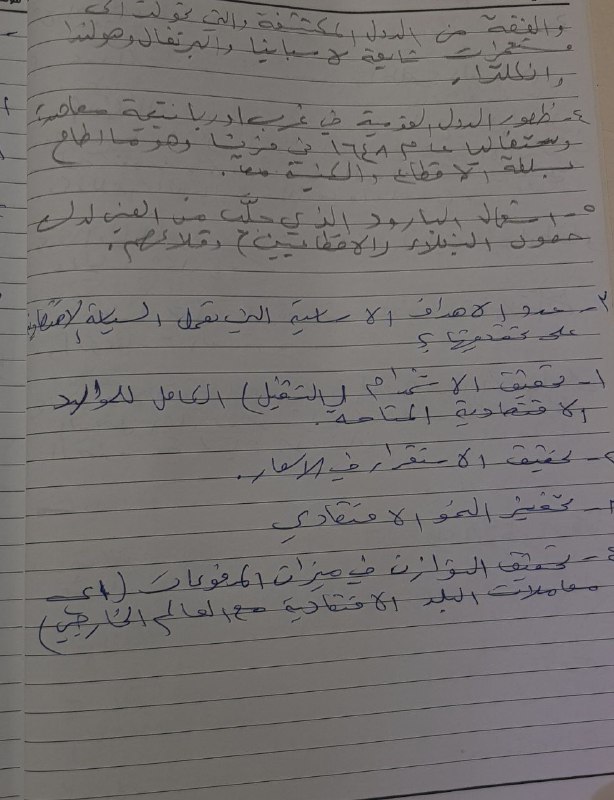 والفقة من الدول المكتشفة والتي تحولت الى
مستعمرات تابعة لاسبانيا والبرتغال وهولندا
وانكلترا.
٤- ظهور الدول القومية في غرب اوربا نتيجة معاهدة
وستفاليا عام ١٦٤٨ في فرنسا وهو ما اطاح
بسلطة الاقطاع والكنيسة معا.
٥- استعمال البارود الذي جلب من الصين لدك
حصون النبلاء (الاقطاعيين) وقلاعهم.
٢- عدد الاهداف الاساسية التي تعمل السياسة الاقتصادية
على تحقيقها؟
١- تحقيق الاستخدام (التشغيل) الكامل للموارد
الاقتصادية المتاحة.
٢- تحقيق الاستقرار في الاسعار.
٣- تحفيز النمو الاقتصادي
٤- تحقيق التوازن في ميزان المدفوعات (اي
معاملات البلد الاقتصادية مع العالم الخارجي)